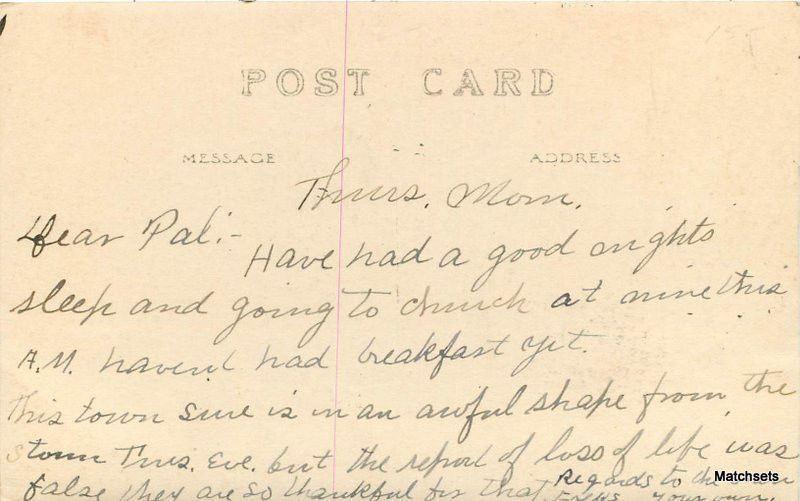 POST CARD
MESSAGE ADDRESS
Thurs. Morn.
Dear Pal:-
Have had a good nights
sleep and going to church at nine this
A.M. havent had breakfast yet.
This town sure is in an awful shape from the
storm Tues. Eve. but the report of loss of life was
false they are so thankful for that
Regards to the
your own
Matchsets